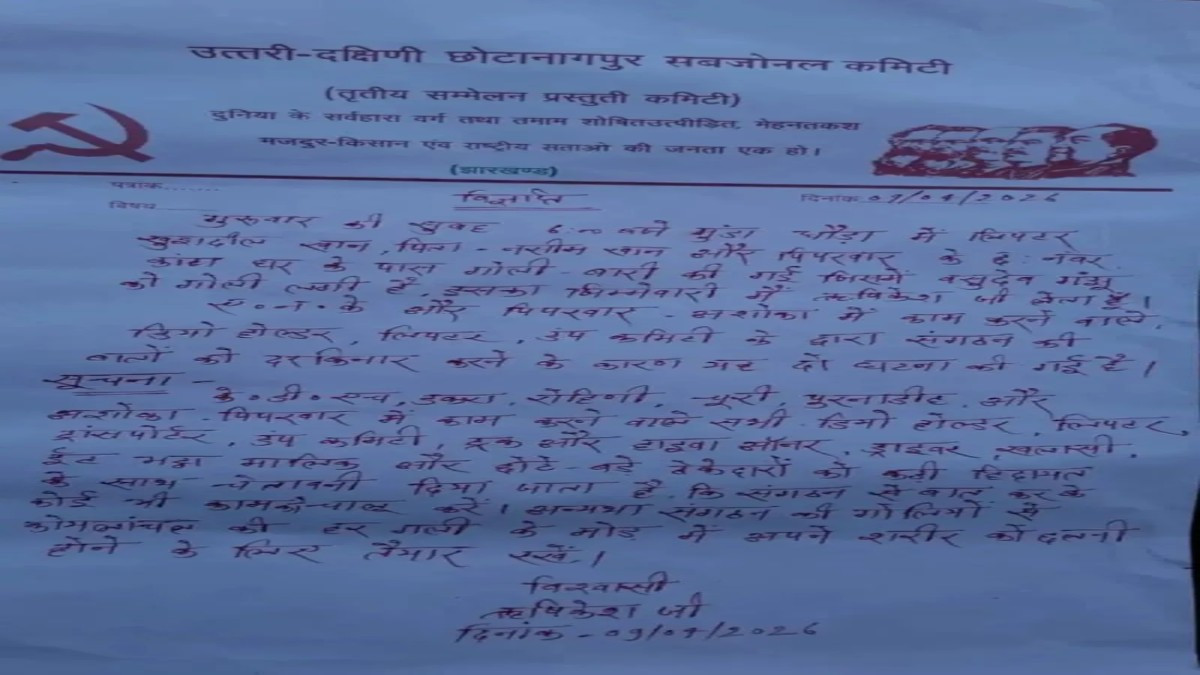 उत्तरी-दक्षिणी छोटानागपुर सबजोनल कमिटी
(तृतीय सम्मेलन प्रस्तुती कमिटी)
दुनिया के सर्वहारा वर्ग तथा तमाम शोषितउत्पीड़ित, मेहनतकश
मजदुर-किसान एंव राष्ट्रीय सताओ की जनता एक हो।
(झारखण्ड)
पत्रांक.......
विषय.........
दिनांक 09/04/2026
विज्ञप्ति
गुरुवार की सुबह 6:00 बजे मुंडा धौड़ा में लिफ्टर
खान, पिता - नसीम खान और पिपरवार के 6: नंबर
कांटा घर के पास गोली-बारी की गई जिसमें वासुदेव गंझू
को गोली लगी हैं, इसका जिम्मेवारी मैं ऋषिकेश जी लेता हूँ।
के और पिपरवार - अशोका में काम करने वाले,
डिमो होल्डर, लिफ्टर, डंप कमिटी के द्वारा संगठन की
बातों को दरकिनार करने के कारण यह दो घटना की गई है।
सूचना -
के॰डी॰एच, डकरा, रोहिणी, चूरी पुरनाडीह और
अशोका पिपरवार में काम करने वाले सभी डिमो होल्डर, लिफ्टर,
ट्रांसपोर्टर, डंप कमिटी, ट्रक और हाइवा ऑनर, ड्राइवर, खलासी,
ईट भट्ठा मालिक और छोटे-बडे ठेकेदारों को कडी हिदायत
के साथ चेतावनी दिया जाता है कि संगठन से बात करके
कोई भी काम को चालू करें। अन्यथा संगठन की गोलियों से
कोयलांचल की हर गली के मोड में अपने शरीर को छलनी
होने के लिए तैयार रखें।
विश्वासी
ऋषिकेश जी
दिनांक - 09/04/2026